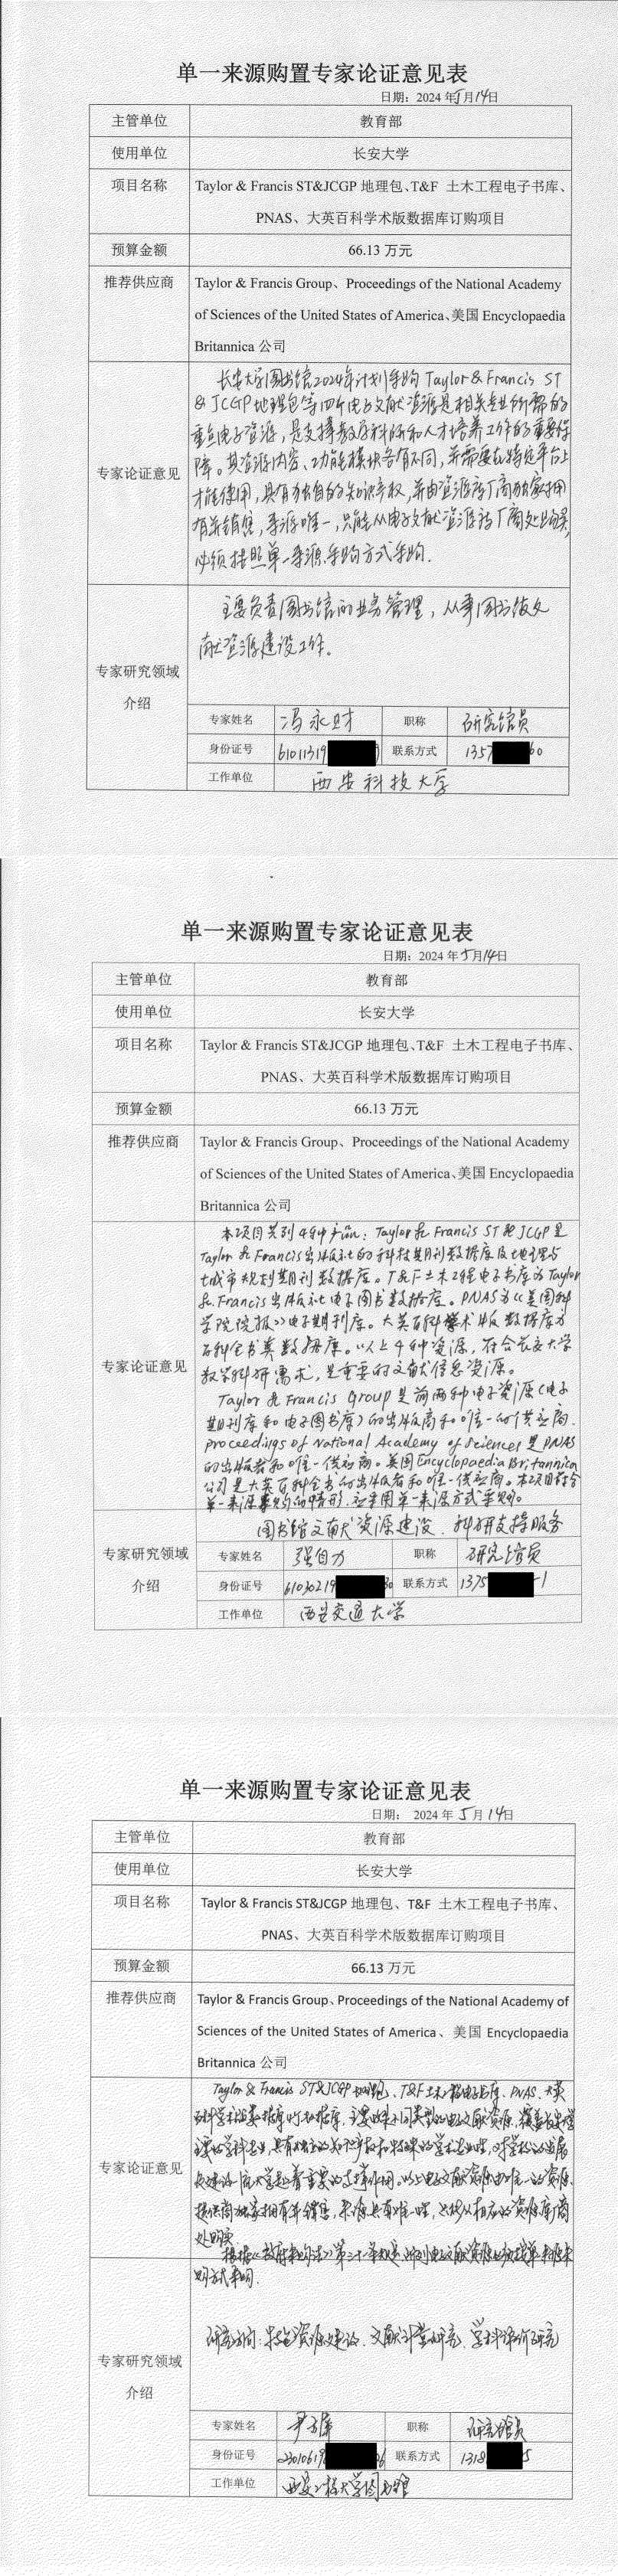 单一来源购置专家论证意见表
日期：2024 年5月14日
主管单位 教育部
使用单位 长安大学
项目名称 Taylor & Francis ST&JCGP 地理包、T&F 土木工程电子书库、
PNAS、大英百科学术版数据库订购项目
预算金额 66.13 万元
推荐供应商 Taylor & Francis Group、Proceedings of the National Academy
of Sciences of the United States of America、美国 Encyclopaedia
Britannica 公司
专家论证意见
长安大学图书馆2024年计划采购 Taylor & Francis ST
& JCGP地理包等四个电子文献资源是相关专业所需的
重点电子资源，是支撑教学科研和人才培养工作的重要保
障。其资源内容、功能模块各有不同，并需要在特定平台上
才能使用，具有独自的知识产权，并由资源库厂商独家拥
有并销售，来源唯一，只能从电子文献资源该厂商处购买，
必须按照单一来源采购方式采购.
专家研究领域
介绍
主要负责图书馆的业务管理，从事图书馆文
献资源建设工作。
专家姓名 冯永财 职称 研究馆员
身份证号 61011319 联系方式 1357 60
工作单位 西安科技大学
单一来源购置专家论证意见表
日期：2024 年5月14日
主管单位 教育部
使用单位 长安大学
项目名称 Taylor & Francis ST&JCGP 地理包、T&F 土木工程电子书库、
PNAS、大英百科学术版数据库订购项目
预算金额 66.13 万元
推荐供应商 Taylor & Francis Group、Proceedings of the National Academy
of Sciences of the United States of America、美国 Encyclopaedia
Britannica 公司
专家论证意见
本项目共列4种产品：Taylor & Francis ST和JCGP是
Taylor & Francis出版社的科技期刊数据库及地理与
城市规划期刊数据库。T&F土木工程电子书库为Taylor
& Francis出版社电子图书数据库。PNAS为《美国科
学院院报》电子期刊库。大英百科学术版数据库为
百科全书类数据库。以上4种资源，符合长安大学
教学科研需求，是重要的文献信息资源。
Taylor & Francis Group是前两种电子资源（电子
期刊库和电子图书库）的出版商和唯一的供应商.
proceedings of National Academy of Sciences是PNAS
的出版者和唯一供应商。美国Encyclopaedia Britannica
公司是大英百科全书的出版者和唯一供应商。本项目符合
单一来源采购的情形，应采用单一来源方式采购。
专家研究领域
介绍
图书馆文献资源建设、科研支持服务
专家姓名 强自力 职称 研究馆员
身份证号 61030219 30 联系方式 1375 1
工作单位 西安交通大学
单一来源购置专家论证意见表
日期： 2024 年 5月14日
主管单位 教育部
使用单位 长安大学
项目名称 Taylor & Francis ST&JCGP 地理包、T&F 土木工程电子书库、
PNAS、大英百科学术版数据库订购项目
预算金额 66.13 万元
推荐供应商 Taylor & Francis Group、Proceedings of the National Academy of
Sciences of the United States of America、美国 Encyclopaedia
Britannica 公司
专家论证意见
Taylor & Francis ST&JCGP 地理包、T&F土木工程电子书库、PNAS、大英
百科学术版数据库 数据库，主要收录不同类型的电子文献资源，覆盖长安大学
主要的学科专业，具有独立的知识产权和特殊的学术专业性，对学校的发展
及建设一流大学起着重要的支撑作用。以上电子文献资源由唯一的资源
提供商独家拥有并销售，来源具有唯一性，只能从相应的资源库厂商
处购买
根据《政府采购法》第三十一条规定，所列电子文献资源必须按单一来源采
购方式采购.
专家研究领域
介绍
研究方向：特色资源建设、文献计量研究、学科评价研究
专家姓名 职称 研究馆员
身份证号 2301061 6 联系方式 1318 5
工作单位 西安工程大学图书馆